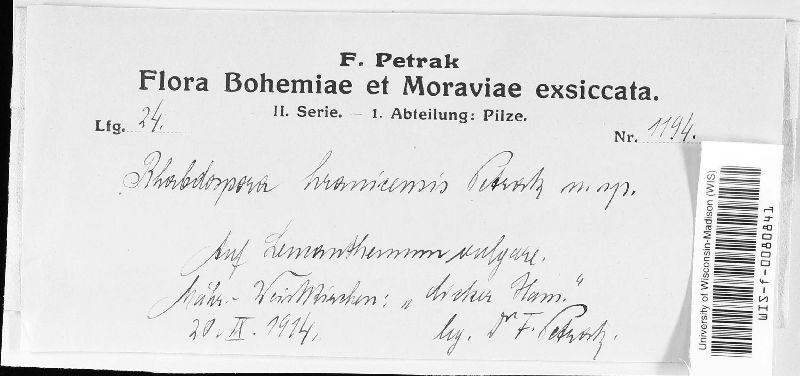 F. Petrak
Flora Bohemiae et Moraviae exsiccata.
II. Serie. — I. Abteilung: Pilze.
Lfg. 24.
Nr. 1194.
Rhabdospora hranicensis Petrak n. sp.
Auf Leucanthemum vulgare.
Mähr.-Weisskirchen: „dicker Hain."
20. IX. 1914.
leg. Dr F. Petrak.
University of Wisconsin-Madison (WIS)
WIS-f-0080841